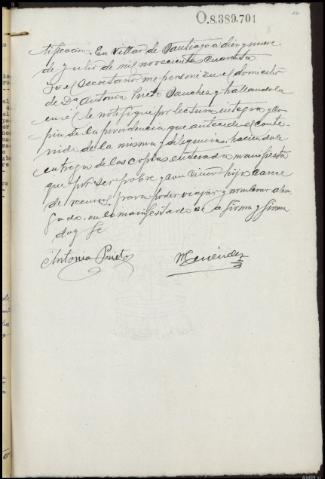 O.8.389.701
tificación. En Villar de Santiago a diez y nueve
de Julio de mil novecientos cuarenta
yo el Secretario me personé en el domicilio
de Dª Antonia Prieto Sanchez y hallandola
en el le notifiqué por lectura integra y co
pia de la providencia que antecede, conte
nido de la misma y diligencia, haciendole
entrega de las copias enterada manifiesta
que por ser pobre y aun hijo carece
de para poder viajar y nombrar abo
gado. así lo manifestado la firma y firma
doy fe
Antonia Prieto
Menéndez